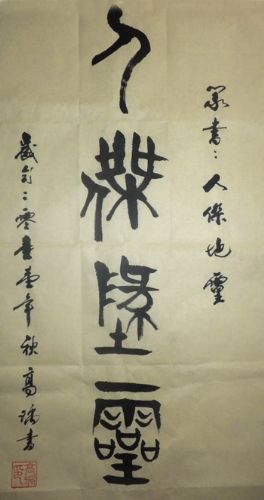 篆書：人傑地靈
人傑地靈
歲二零壹年秋高書